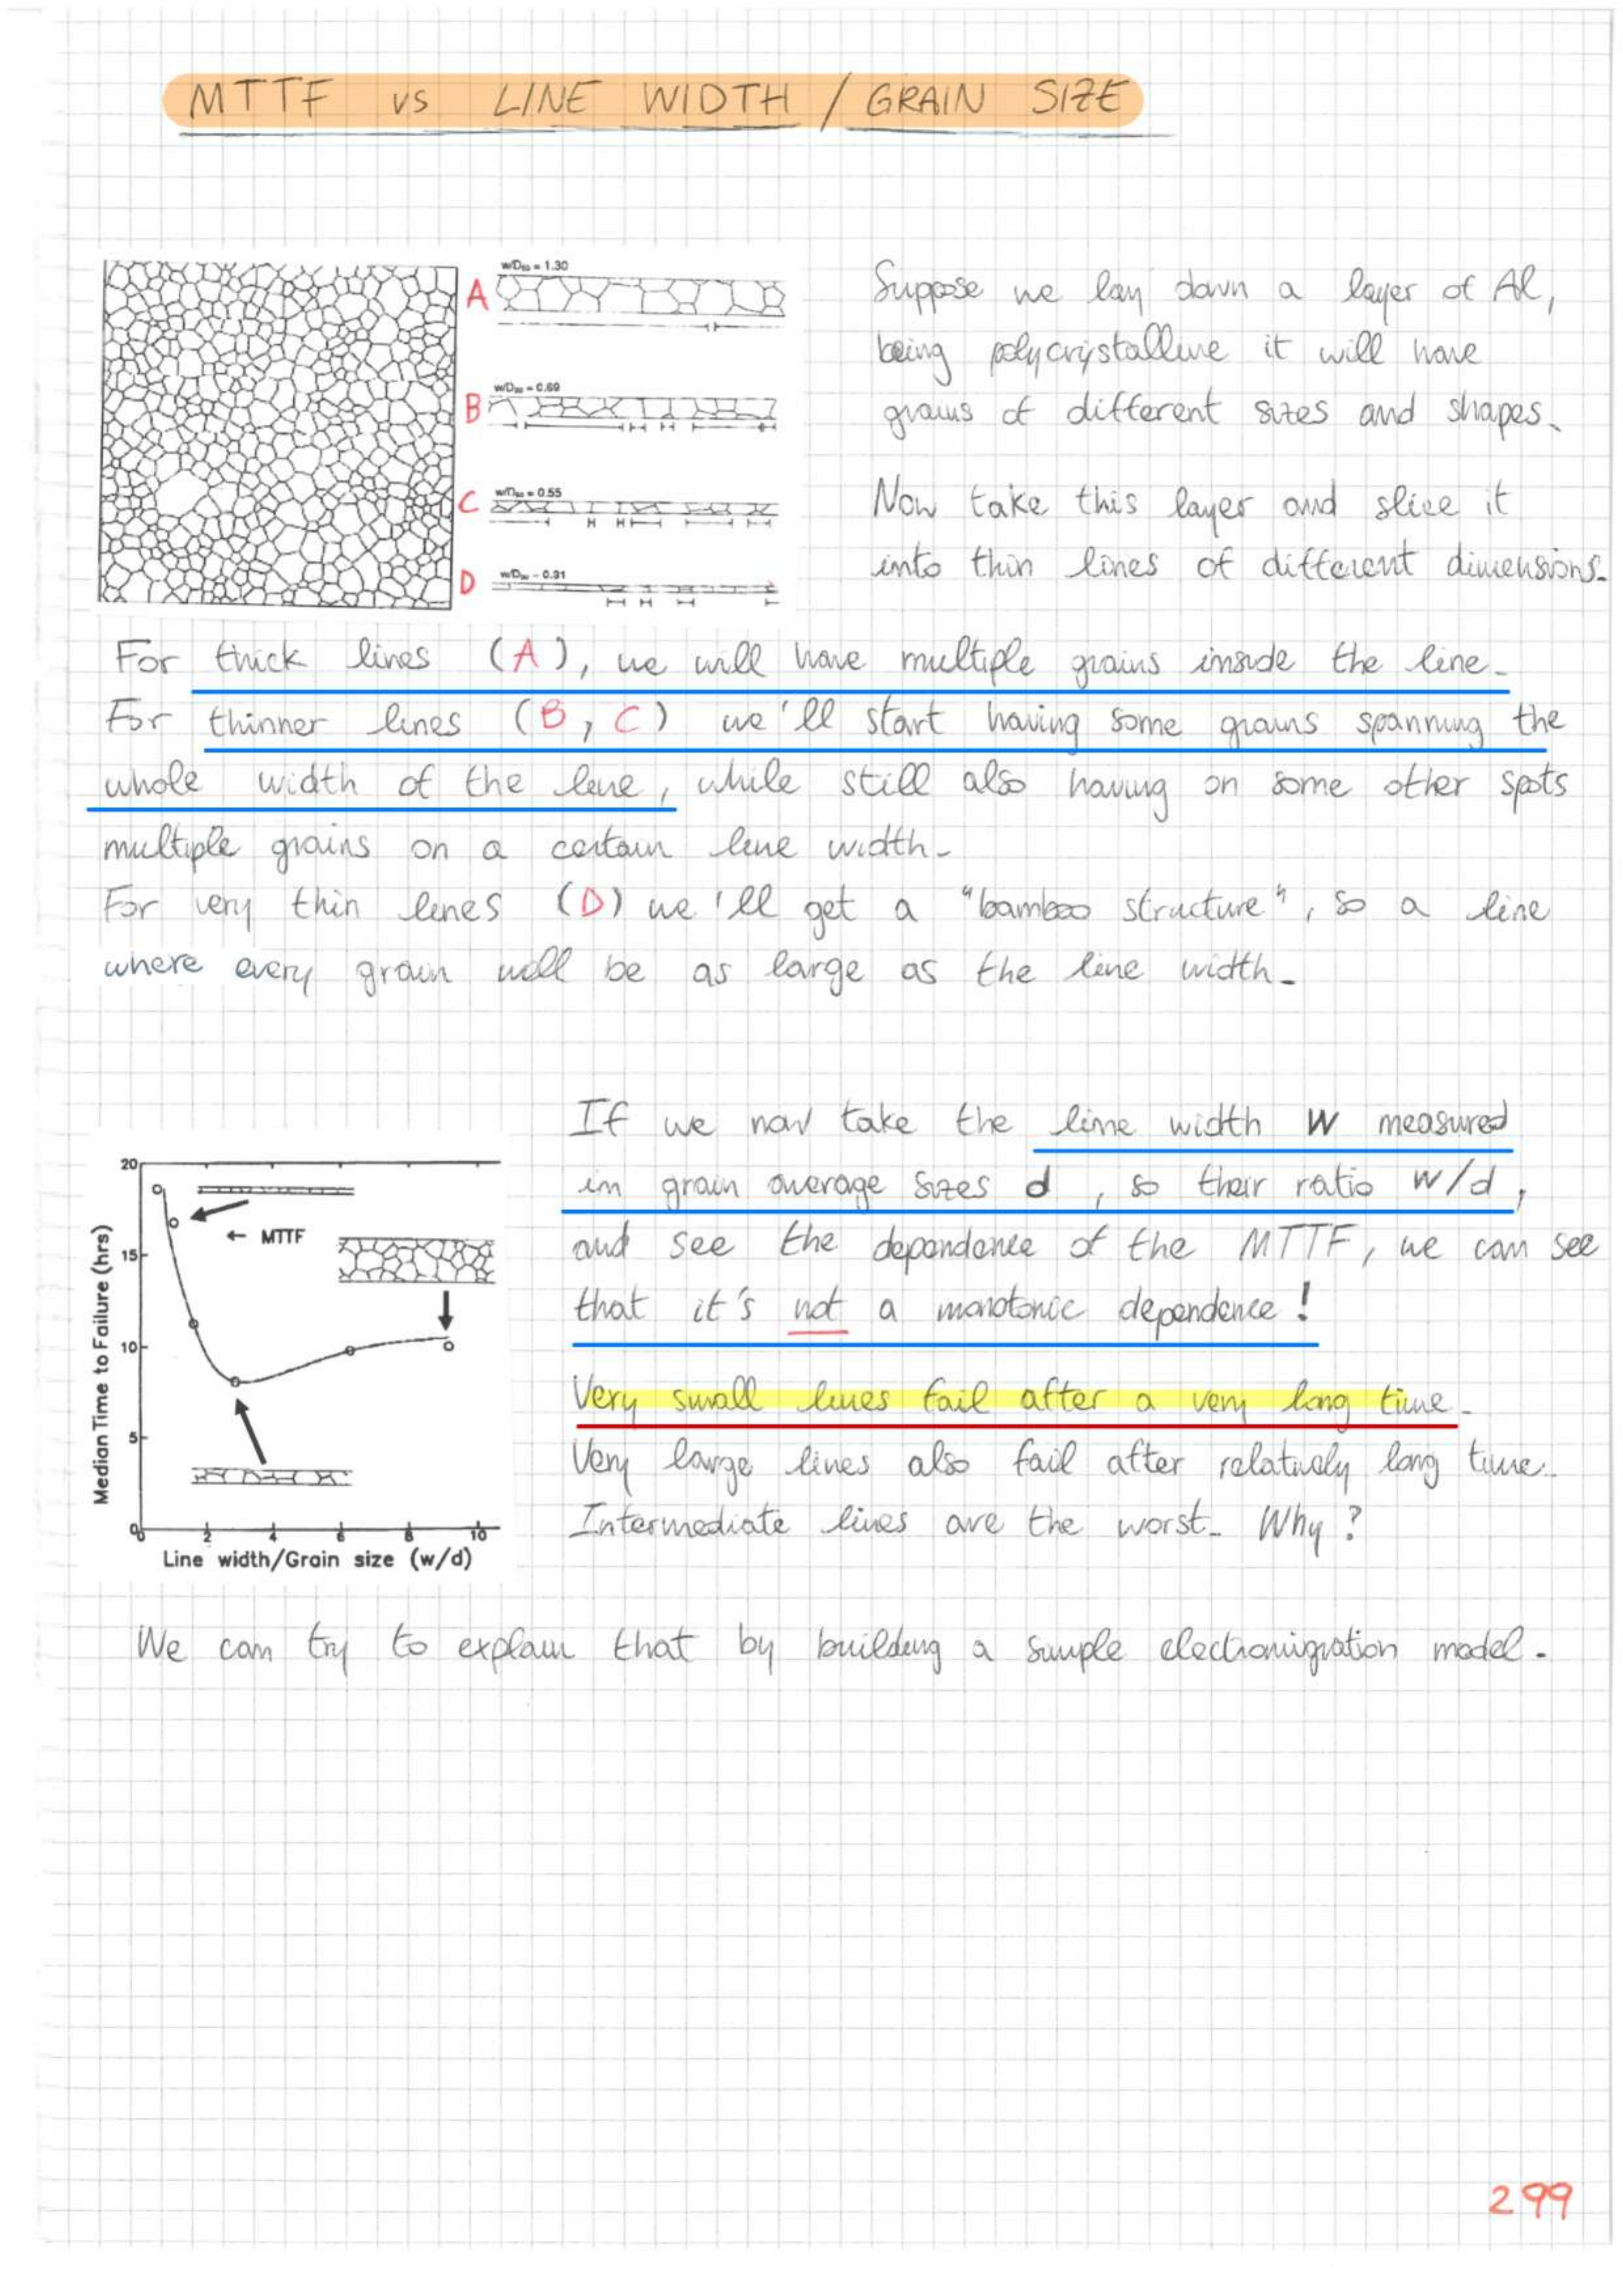 MTTF vs LINE WIDTH / GRAIN SIZE
A
w/D50 = 1.30
B
w/D50 = 0.69
C
w/D50 = 0.55
D
w/D50 = 0.31
Suppose we lay down a layer of Al,
being polycrystalline it will have
grains of different sizes and shapes.
Now take this layer and slice it
into thin lines of different dimensions.
For thick lines (A), we will have multiple grains inside the line.
For thinner lines (B, C) we'll start having some grains spanning the
whole width of the line, while still also having on some other spots
multiple grains on a certain line width.
For very thin lines (D) we'll get a "bamboo structure", so a line
where every grain will be as large as the line width.
If we now take the line width W measured
in grain average sizes d, so their ratio W/d,
and see the dependence of the MTTF, we can see
that it's not a monotonic dependence!
Very small lines fail after a very long time.
Very large lines also fail after relatively long time.
Intermediate lines are the worst. Why?
Median Time to Failure (hrs)
20
15
10
5
0
← MTTF
0 2 4 6 8 10
Line width/Grain size (w/d)
We can try to explain that by building a simple electromigration model.
299